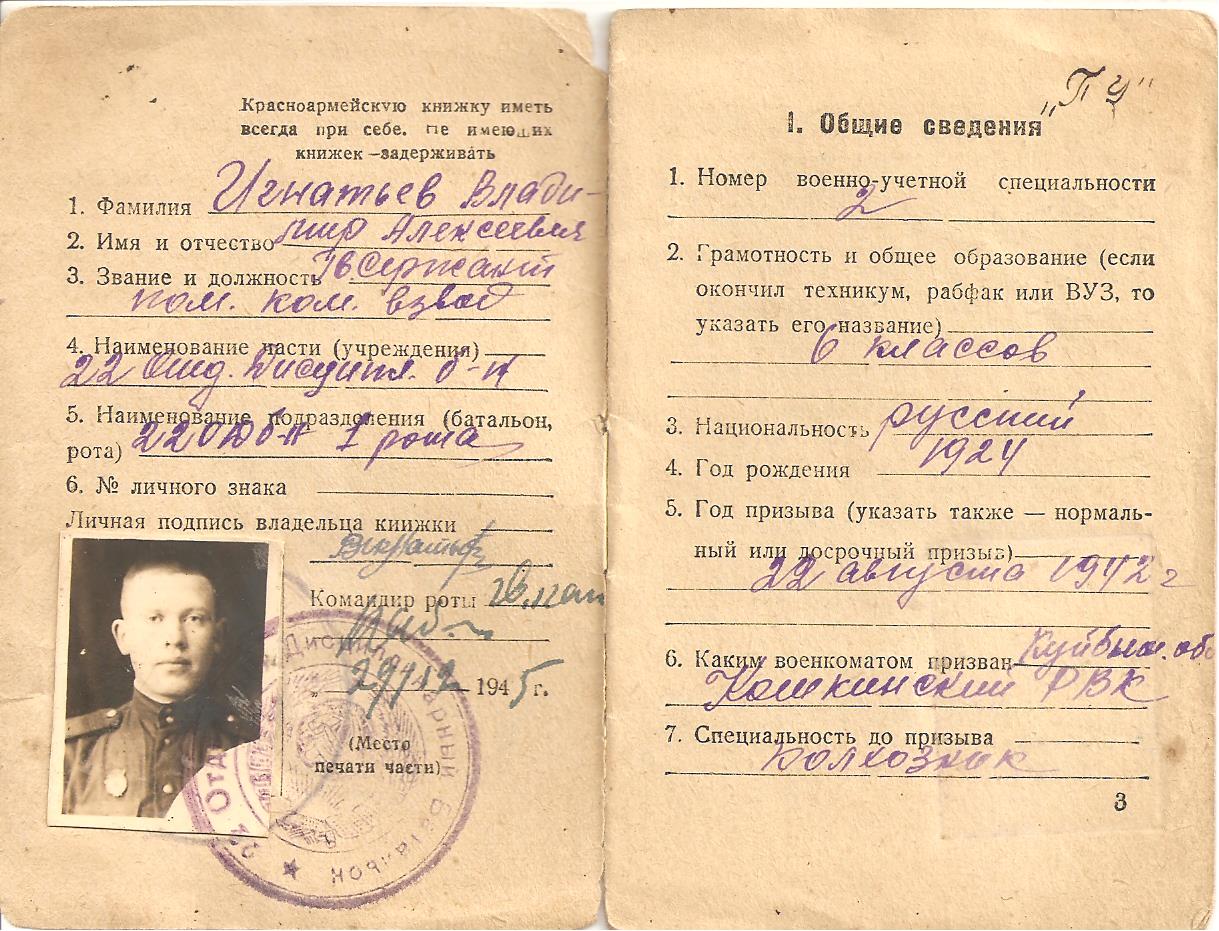 Красноармейскую книжку иметь
всегда при себе. Не имеющих
книжек —задерживать
1. Фамилия Игнатьев Влади-
2. Имя и отчество мир Алексеевич
3. Звание и должность Гв Сержант
пом. ком. взвод
4. Наименование части (учреждения)
22 Отд. Дисципл. б-н
5. Наименование подразделения (батальон,
рота) 22 ОДб-н 1 рота
6. № личного знака
Личная подпись владельца книжки
Командир роты
29/12 1945 г.
(Место
печати части)
22 Отд Дисциплинарный Батальон
"ПУ"
I. Общие сведения
1. Номер военно-учетной специальности
2
2. Грамотность и общее образование (если
окончил техникум, рабфак или ВУЗ, то
указать его название)
6 классов
3. Национальность русский
4. Год рождения 1924
5. Год призыва (указать также — нормаль-
ный или досрочный призыв)
22 августа 1942 г
6. Каким военкоматом призван Куйбыш. обл
Кошкинский РВК
7. Специальность до призыва
Колхозник
3